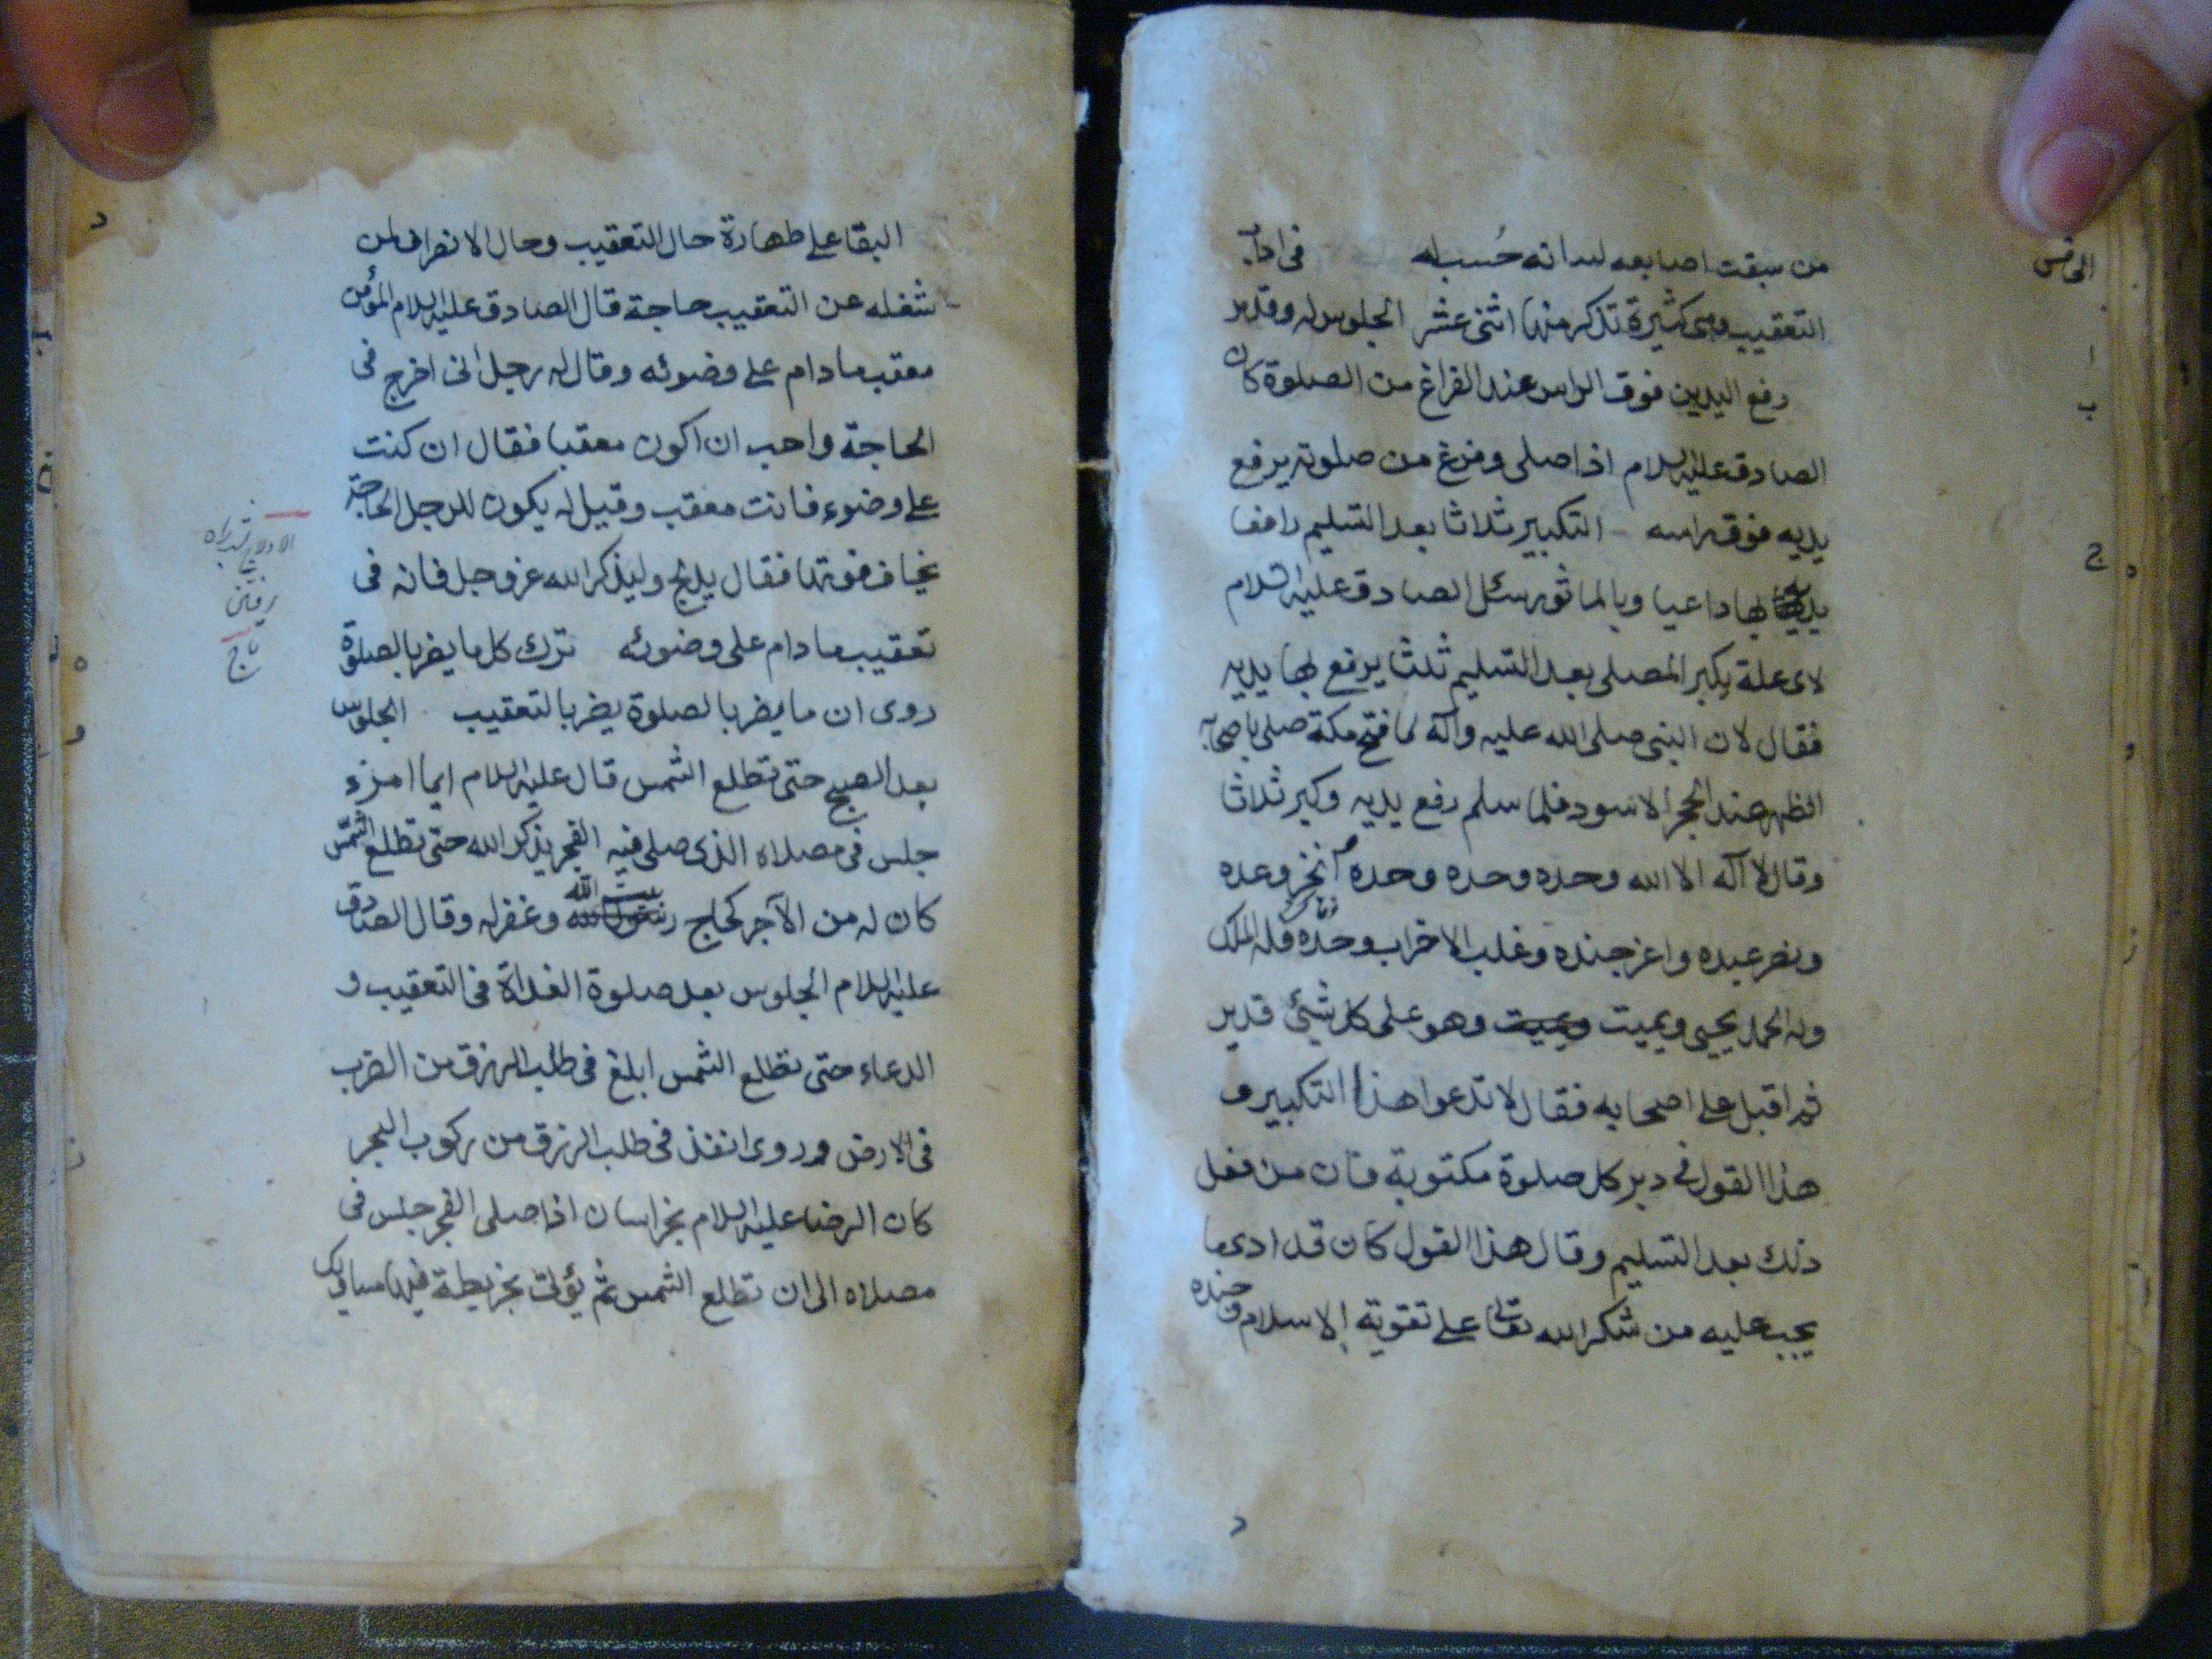 من سبقت اصابعه لسانه حُسب له في اداب
التعقيب وهى كثيرة تذكر منها اثنى عشر الجلوس له وقد مر
رفع اليدين فوق الراس عند الفراغ من الصلوة كان
الصادق عليه السلام اذا صلى وفرغ من صلوته يرفع
يديه فوق راسه التكبير ثلاثا بعد التسليم رافعا
يديه بها داعيا وبالماثور سئل الصادق عليه السلام
لاى علة يكبر المصلى بعد التسليم ثلثا يرفع بها يديه
فقال لان النبى صلى الله عليه وآله لما فتح مكة صلى باصحابه
الظهر عند الحجر الاسود فلما سلم رفع يديه وكبر ثلاثا
وقال لا اله الا الله وحده وحده وحده انجز وعده
ونصر عبده واعز جنده وغلب الاحزاب وحده فله الملك
وله الحمد يحيى ويميت ويميت وهو على كل شئ قدير
ثم اقبل على اصحابه فقال لا تدعوا هذا التكبير و
هذا القول فى دبر كل صلوة مكتوبة فان من فعل
ذلك بعد التسليم وقال هذا القول كان قد ادى ما
يجب عليه من شكر الله تعالى على تقوية الاسلام وجنده
ا
ب
ج
د
البقا على طهارة حال التعقيب وحال الانصراف لمن
شغله عن التعقيب حاجة قال الصادق عليه السلام المؤمن
معقب ما دام على وضوئه وقال له رجل انى اخرج فى
الحاجة واحب ان اكون معقبا فقال ان كنت
على وضوء فانت معقب وقيل له يكون للرجل الحاجة
يخاف فوتها فقال يدلج وليذكر الله عز وجل فانه فى
تعقيب ما دام على وضوئه ترك كل ما يضر بالصلوة
روى ان ما يضر بالصلوة يضر بالتعقيب الجلوس
بعد الصبح حتى تطلع الشمس قال عليه السلام ايما امرء
جلس فى مصلاه الذى صلى فيه الفجر يذكر الله حتى تطلع الشمس
كان له من الاجر كحاج رسول الله بيت الله وغفر له وقال الصادق
عليه السلام الجلوس بعد صلوة الغداة فى التعقيب و
الدعاء حتى تطلع الشمس ابلغ فى طلب الرزق من الضرب
فى الارض وروى انفذ فى طلب الرزق من ركوب البحر
كان الرضا عليه السلام بخراسان اذا صلى الفجر جلس فى
مصلاه الى ان تطلع الشمس ثم يؤتى بخريطة فيها مساويك
د
ه
و
رفتن
تاج